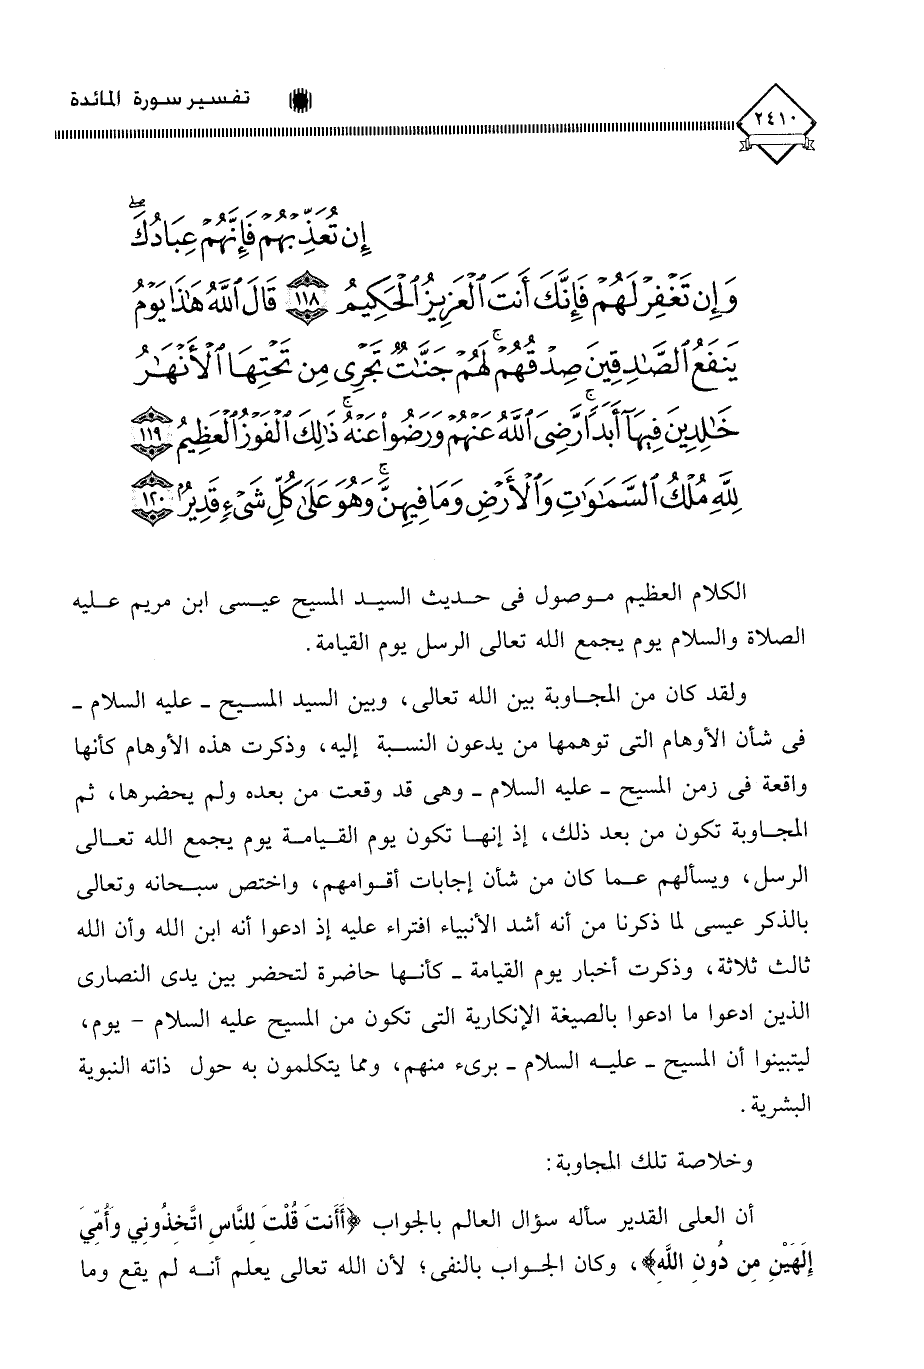 تفسير سورة المائدة
٢٤١٠
إِن تُعَذِّبْهُمْ فَإِنَّهُمْ عِبَادُكَ ۖ
وَإِن تَغْفِرْ لَهُمْ فَإِنَّكَ أَنتَ ٱلْعَزِيزُ ٱلْحَكِيمُ ١١٨ قَالَ ٱللَّهُ هَٰذَا يَوْمُ
يَنفَعُ ٱلصَّٰدِقِينَ صِدْقُهُمْ ۚ لَهُمْ جَنَّٰتٌ تَجْرِى مِن تَحْتِهَا ٱلْأَنْهَٰرُ
خَٰلِدِينَ فِيهَآ أَبَدًا ۚ رَّضِىَ ٱللَّهُ عَنْهُمْ وَرَضُوا۟ عَنْهُ ۚ ذَٰلِكَ ٱلْفَوْزُ ٱلْعَظِيمُ ١١٩
لِلَّهِ مُلْكُ ٱلسَّمَٰوَٰتِ وَٱلْأَرْضِ وَمَا فِيهِنَّ ۚ وَهُوَ عَلَىٰ كُلِّ شَىْءٍ قَدِيرٌۢ ١٢٠
الكلام العظيم موصول فى حديث السيد المسيح عيسى ابن مريم عليه
الصلاة والسلام يوم يجمع الله تعالى الرسل يوم القيامة.
ولقد كان من المجاوبة بين الله تعالى، وبين السيد المسيح ـ عليه السلام ـ
فى شأن الأوهام التى توهمها من يدعون النسبة إليه، وذكرت هذه الأوهام كأنها
واقعة فى زمن المسيح ـ عليه السلام ـ وهى قد وقعت من بعده ولم يحضرها، ثم
المجاوبة تكون من بعد ذلك، إذ إنها تكون يوم القيامة يوم يجمع الله تعالى
الرسل، ويسألهم عما كان من شأن إجابات أقوامهم، واختص سبحانه وتعالى
بالذكر عيسى لما ذكرنا من أنه أشد الأنبياء افتراء عليه إذ ادعوا أنه ابن الله وأن الله
ثالث ثلاثة، وذكرت أخبار يوم القيامة ـ كأنها حاضرة لتحضر بين يدى النصارى
الذين ادعوا ما ادعوا بالصيغة الإنكارية التى تكون من المسيح عليه السلام - يوم،
ليتبينوا أن المسيح ـ عليه السلام ـ برىء منهم، ومما يتكلمون به حول ذاته النبوية
البشرية.
وخلاصة تلك المجاوبة:
أن العلى القدير سأله سؤال العالم بالجواب ﴿أَأَنتَ قُلْتَ لِلنَّاسِ اتَّخِذُونِي وَأُمِّيَ
إِلَهَيْنِ مِن دُونِ اللَّهِ﴾، وكان الجواب بالنفى؛ لأن الله تعالى يعلم أنه لم يقع وما